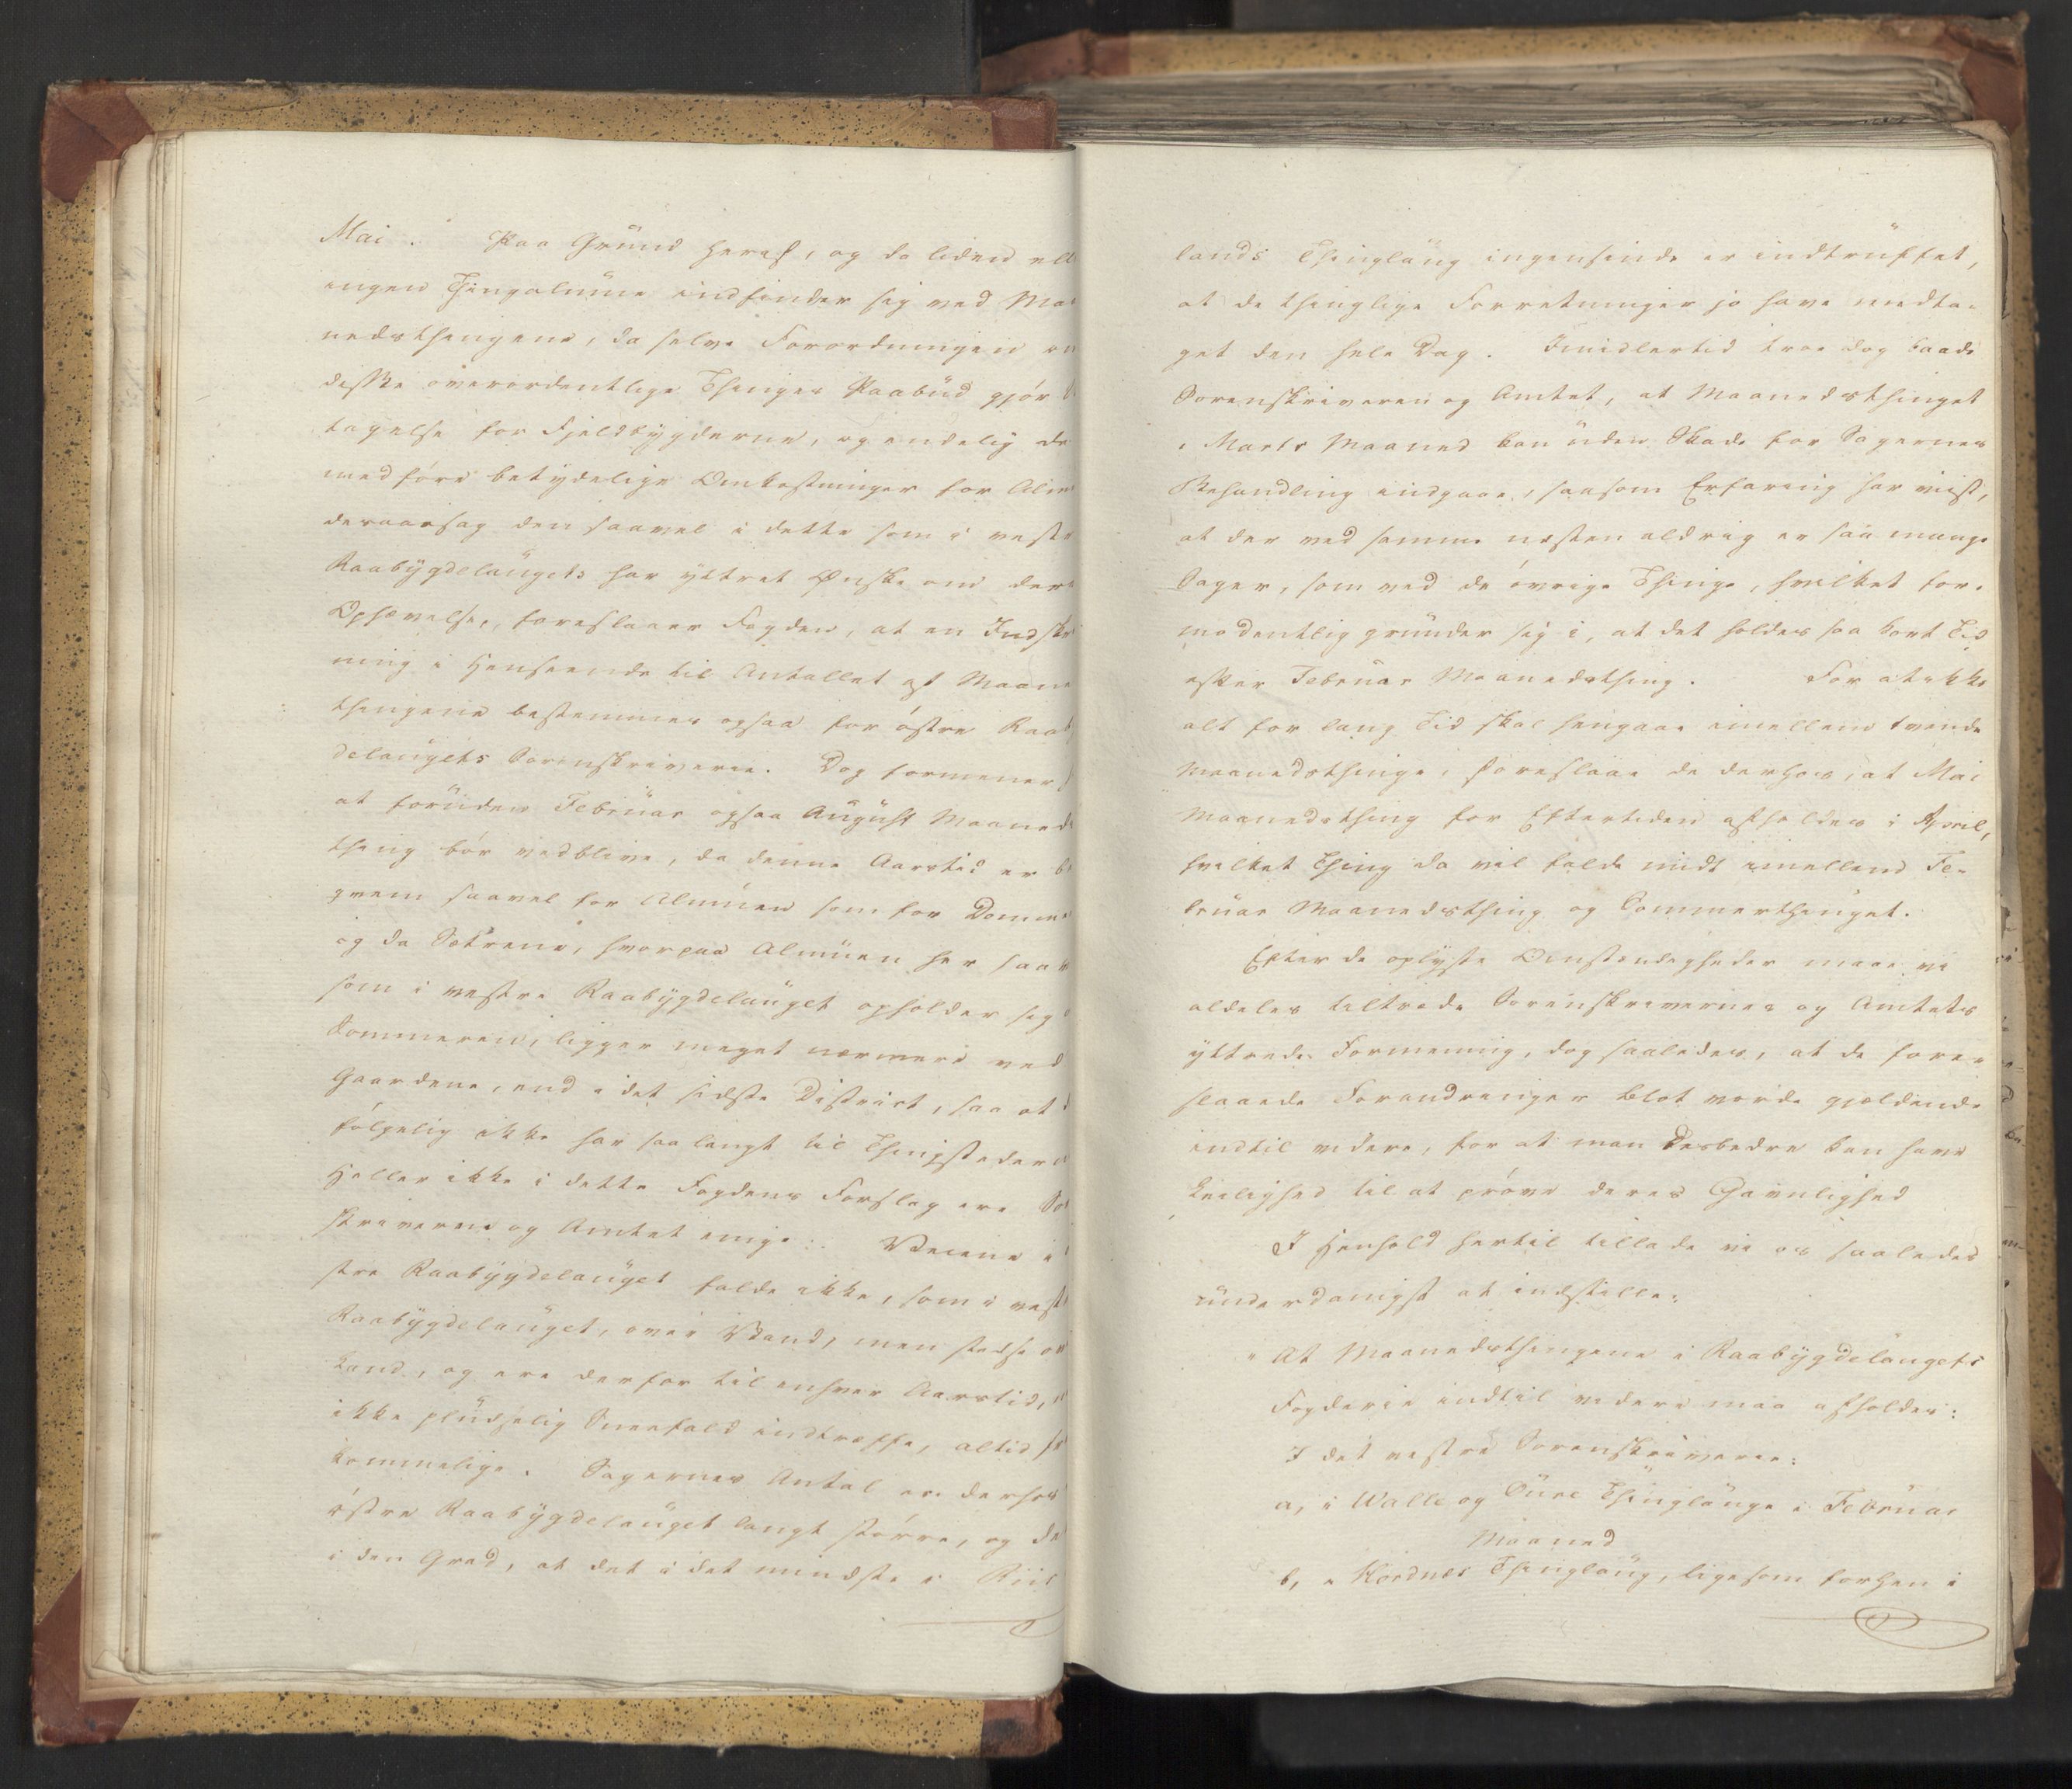 Mai. Paa Grund heraf, og da liden ell
ingen Thingalmue indfinder sig ved Ma
nedsthingene, da selve Forordningen om
disse overordentlige Thinges Paabud gjør
tagelse for Fjeldbygderne, og endelig de
medføre betydelige Omkostninger for Alm
deraarsag den saavel i dette som i vestr
Raabygdelaugets har yttret Ønske om der
Ophævelse, foreslaaer Fogden, at en Indskr
ning i Henseende til Antallet af Maane
thingene bestemmes ogsaa for østre Raab
delaugets Sorenskriverie. Dog formener
at foruden Februar ogsaa August Maaneds
thing bør vedblive, da denne Aarstid er be
qvem saavel for Almuen som for Domme
og da Sætrene, hvorpaa Almuen her saa
som i vestre Raabygdelauget opholder sig
Sommeren, ligger meget nærmere ved
Gaardene, end i det sidste District, saa at
følgelig ikke har saa langt til Thingstedern
Heller ikke i dette Fogdens Forslag ere So
skriveren og Amtet enige. Veiene i
stre Raabygdelauget falde ikke, som i vest
Raabygdelauget, over Vand, men stedse o
Land, og ere derfor til enhver Aarstid,
ikke pludselig Sneefald indtræffe, altid
kommelige. Sagernes Antal er derhos
østre Raabygdelauget langt større, og de
i den Grad, at det i det mindste i
lands Thinglaug ingensinde er indtruffet,
at de thinglige Forretninger jo have medta-
get den hele Dag. Imidlertid troe dog baade
Sorenskriveren og Amtet, at Maanedsthinget
i Marts Maaned kan uden Skade for Sagernes
Behandling indgaae, saasom Erfaring har viist,
at der ved samme næsten aldrig er saa mange
Sager, som ved de øvrige Thinge, hvilket for-
modentlig grunder sig i, at det holdes saa kort Tid
efter Februar Maanedsthing. For at ikke
alt for lang Tid skal hengaae imellem tvende
Maanedsthinge, foreslaae de derhos, at Mai
Maanedsthing for Eftertiden afholdes i April,
hvilket Thing da vil falde midt imellem Fe-
bruar Maanedsthing og Sommerthinget.
Efter de oplyste Omstændigheder maae vi
aldeles tiltræde Sorenskrivernes og Amtets
yttrede Formening, dog saaledes, at de fore-
slaaede Forandringer blot vorde gjældende
indtil videre, for at man desbedre kan have
Leilighed til at prøve deres Gavnlighed
I Henhold hertil tillade vi os saaledes
underdanigst at indstille:
"At Maanedsthingene i Raabygdelaugets
Fogderie indtil videre maa afholdes:
I det vestre Sorenskriverie:
a, i Walle og Thinglauge i Februar
Maaned
b, i Thinglaug, ligesom forhen i